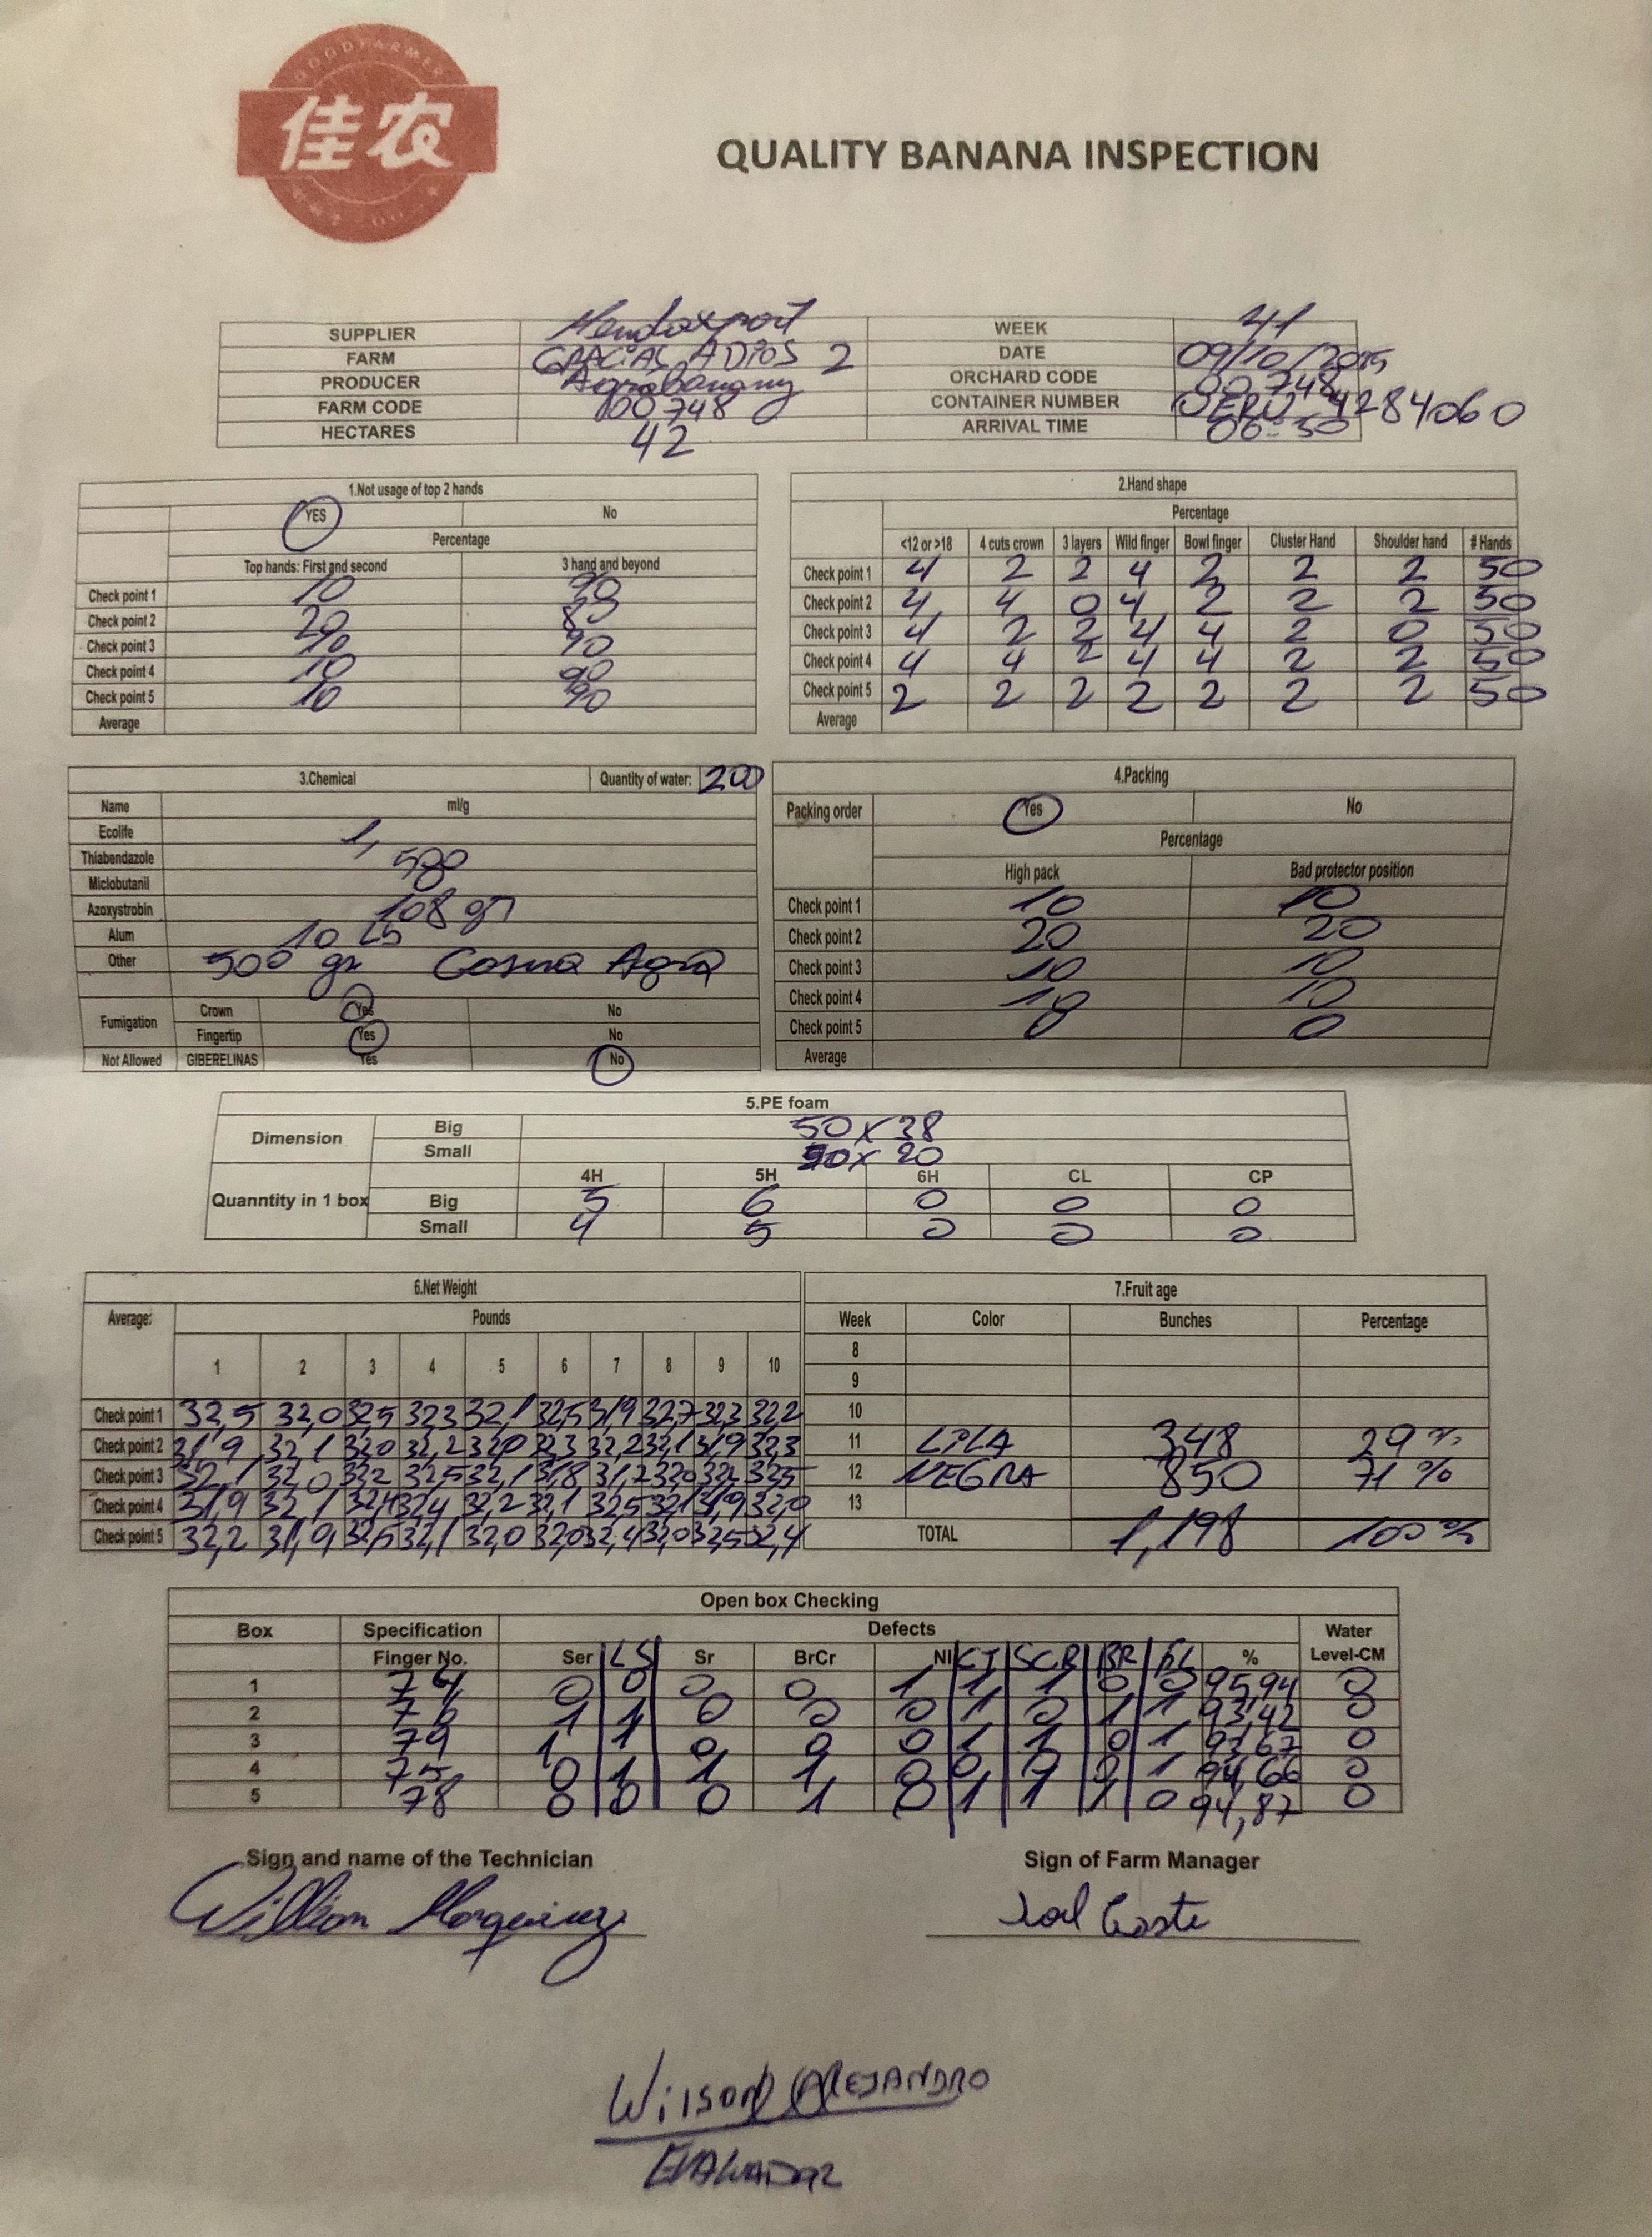 GOODFARMER
佳农
QUALITY BANANA INSPECTION
SUPPLIER Mendoexport WEEK 41
FARM GRACIAS ADIOS 2 DATE 09/10/2015
PRODUCER Agrobanany ORCHARD CODE 00748
FARM CODE 00748 CONTAINER NUMBER 4284060
HECTARES 42 ARRIVAL TIME 06:30
1.Not usage of top 2 hands
YES No
Percentage
Top hands: First and second 3 hand and beyond
Check point 1 10 90
Check point 2 20 80
Check point 3 10 90
Check point 4 10 90
Check point 5 10 90
Average
2.Hand shape
Percentage
<12 or >18 4 cuts crown 3 layers Wild finger Bowl finger Cluster Hand Shoulder hand # Hands
Check point 1 4 2 2 4 2 2 2 50
Check point 2 4 4 0 4 2 2 2 50
Check point 3 4 2 2 4 4 2 0 50
Check point 4 4 4 2 4 4 2 2 50
Check point 5 2 2 2 2 2 2 2 50
Average
3.Chemical Quantity of water: 200
Name ml/g
Ecolife 1,
Thiabendazole 500
Miclobutanil
Azoxystrobin 108 gr
Alum 10 Ls
Other 500 gr Cosma Agra
Fumigation Crown Yes No
Fingertip Yes No
Not Allowed GIBERELINAS Yes No
4.Packing
Packing order Yes No
Percentage
High pack Bad protector position
Check point 1 10 10
Check point 2 20 20
Check point 3 10 10
Check point 4 10 10
Check point 5 0 0
Average
5.PE foam
Dimension Big 50 x 38
Small 50 x 20
4H 5H 6H CL CP
Quanntity in 1 box Big 5 6 0 0 0
Small 4 5 0 0 0
6.Net Weight
Average: Pounds
1 2 3 4 5 6 7 8 9 10
Check point 1 32,5 32,0 32,5 32,3 32,1 32,5 31,9 32,7 32,3 32,2
Check point 2 31,9 32,1 32,0 32,2 32,0 32,3 32,2 32,1 31,9 32,3
Check point 3 32,1 32,0 32,2 32,5 32,1 31,8 31,2 32,0 32,2 32,5
Check point 4 31,9 32,1 32,4 32,4 32,2 32,1 32,5 32,1 31,9 32,0
Check point 5 32,2 31,9 32,5 32,1 32,0 32,0 32,4 32,0 32,5 32,4
7.Fruit age
Week Color Bunches Percentage
8
9
10
11 LILA 348 29 %
12 NEGRA 850 71 %
13
TOTAL 1,198 100 %
Open box Checking
Box Specification Defects Water
Finger No. Ser LS Sr BrCr NI CT SCR BR % Level-CM
1 74 0 0 0 0 1 1 1 0 0 95,94 0
2 76 1 1 0 0 0 1 0 1 1 93,42 0
3 79 1 1 0 0 0 1 1 0 1 93,67 0
4 75 0 1 1 1 0 0 1 94,66 0
5 78 0 0 0 1 0 1 1 1 0 94,87 0
Sign and name of the Technician Sign of Farm Manager
Willion
WILSON ALEJANDRO
EVALUADOR